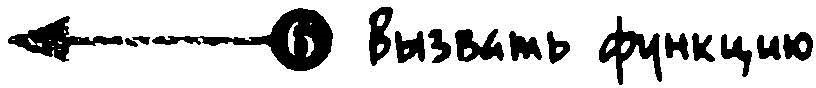 6 Вызвать функцию